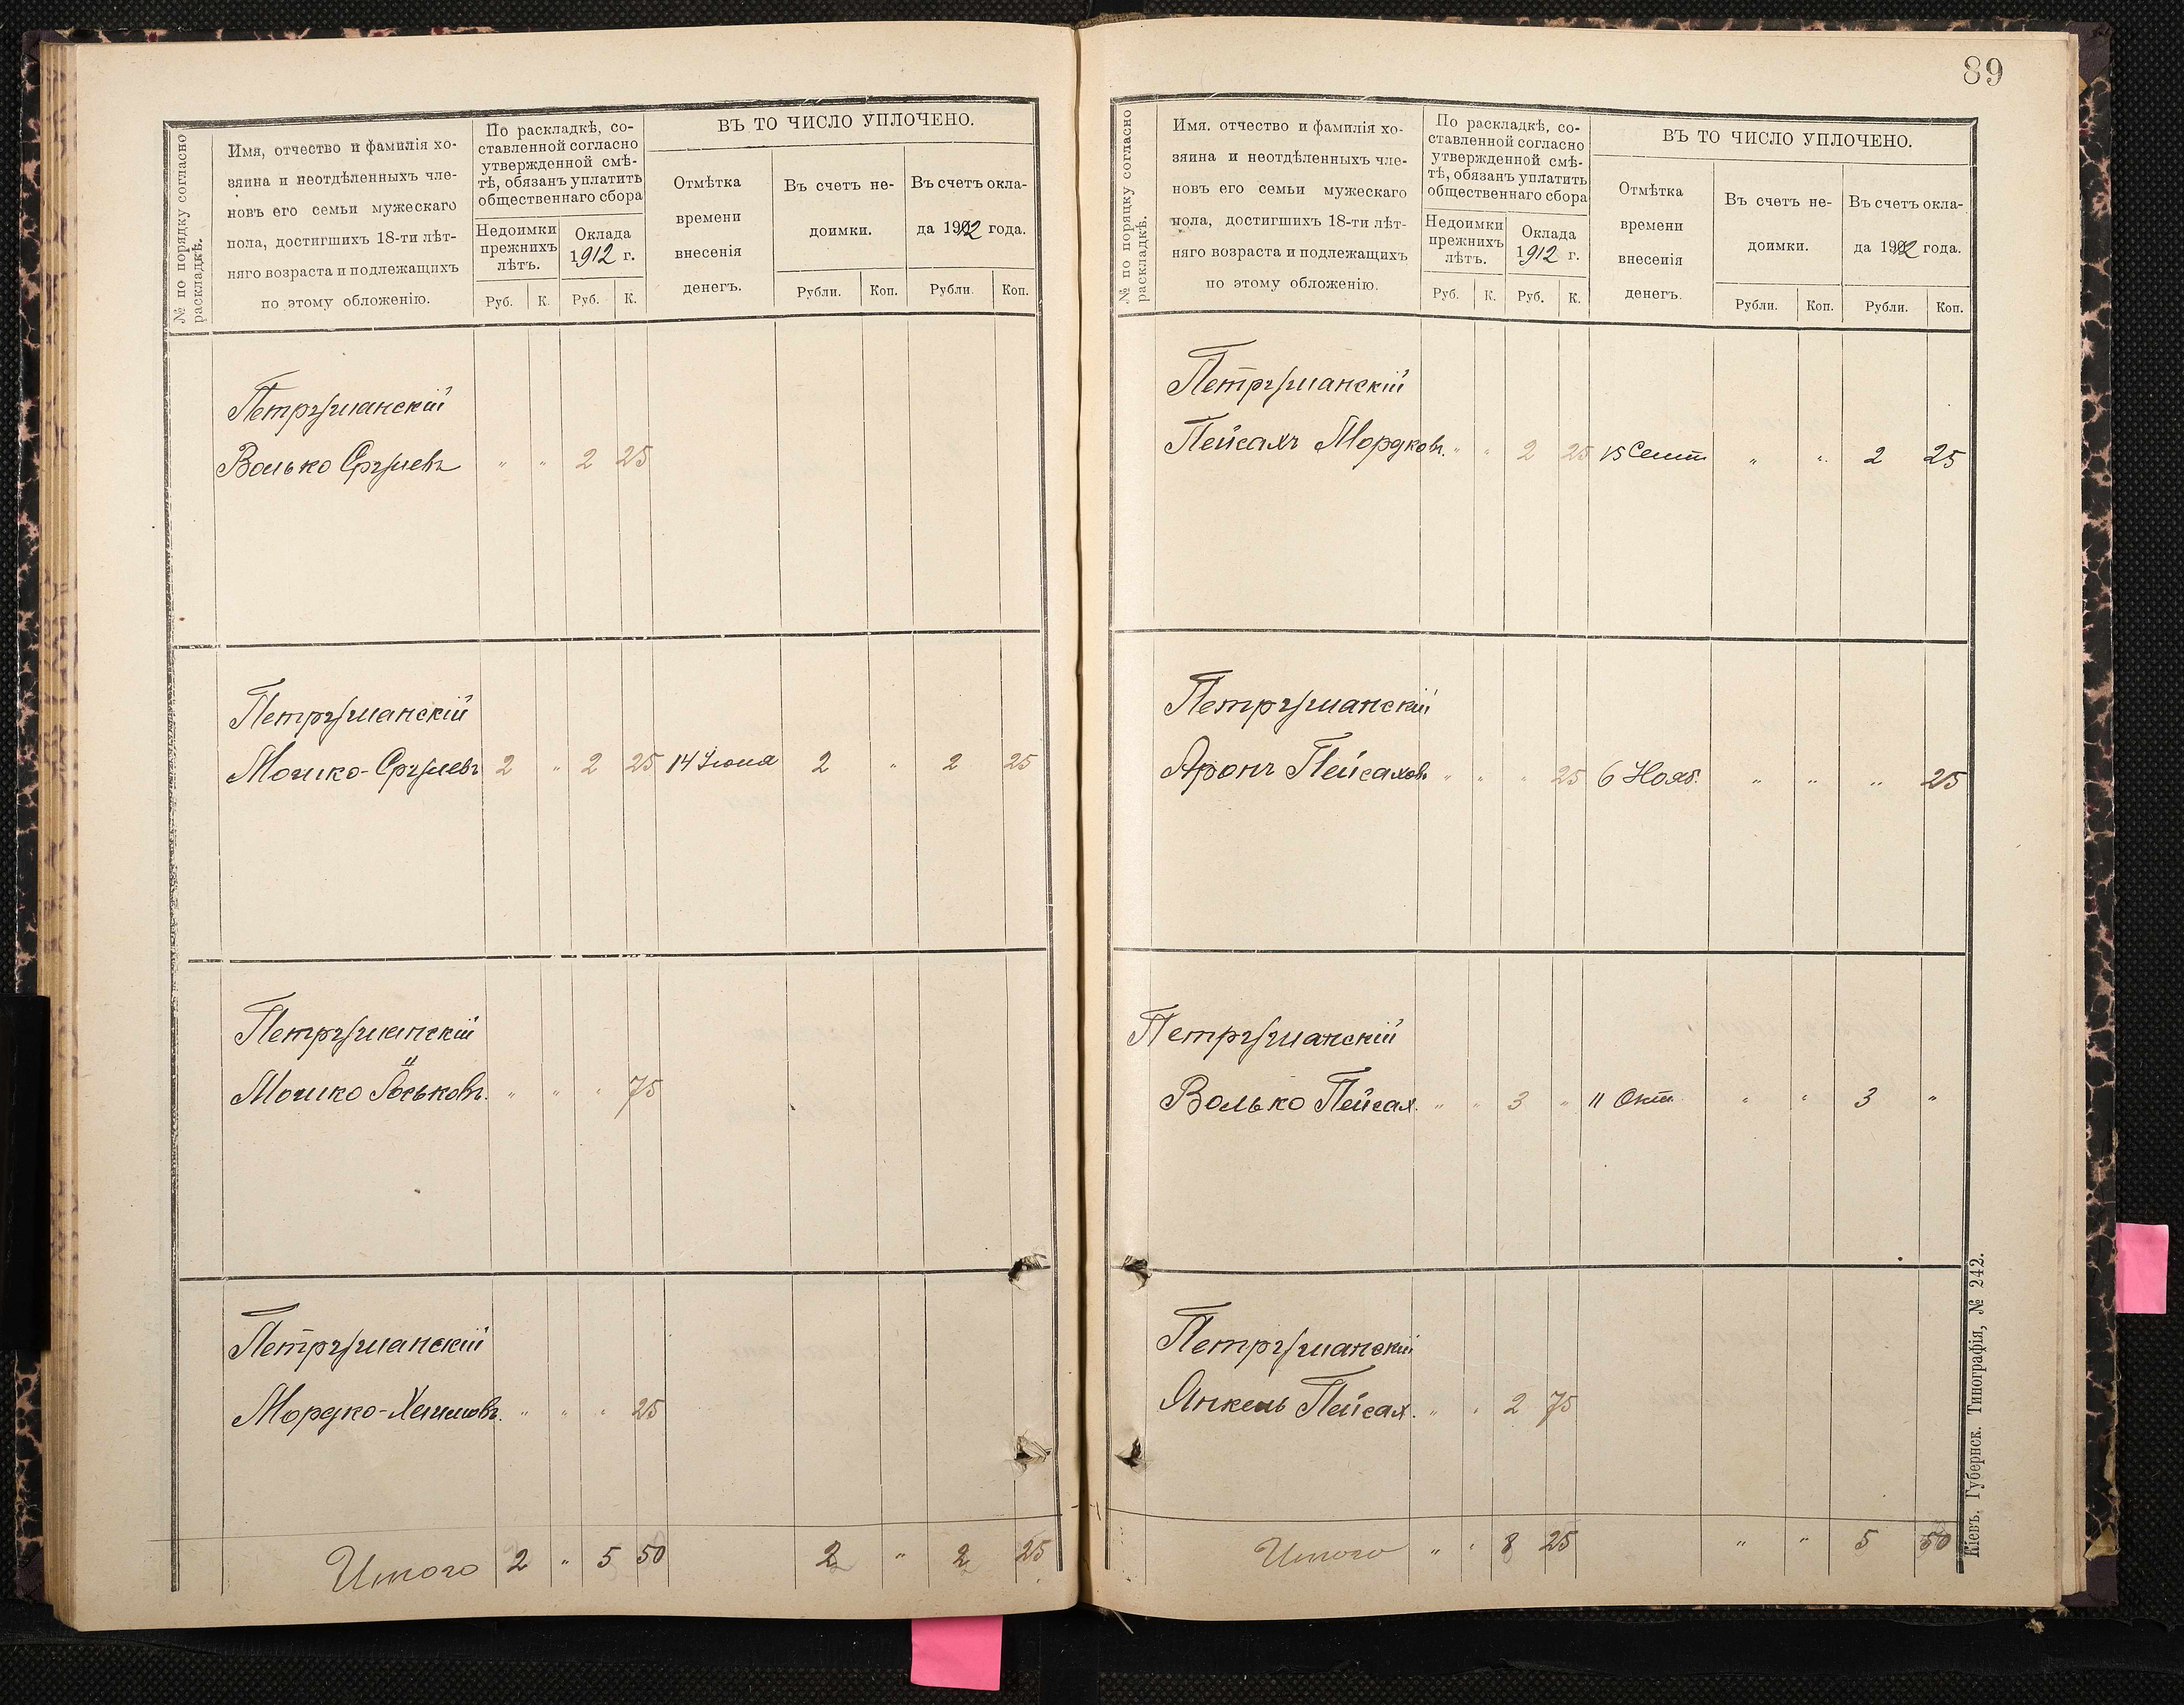 № по порядку согласно
раскладкѣ.
Имя, отчество и фамилія хо-
зяина и неотдѣленныхъ чле-
новъ его семьи мужескаго
пола, достигшихъ 18-ти лѣт-
няго возраста и подлежащихъ
по этому обложенію.
По раскладкѣ, со-
ставленной согласно
утвержденной смѣ-
тѣ, обязанъ уплатить
общественнаго сбора
Недоимки
прежнихъ
лѣтъ.
Оклада
1912 г.
Руб. К. Руб. К.
ВЪ ТО ЧИСЛО УПЛОЧЕНО.
Отмѣтка
времени
внесенія
денегъ.
Въ счетъ не-
доимки.
Въ счетъ окла-
да 1912 года.
Рубли. Коп. Рубли. Коп.
Петрушанскій
Волько Срулевъ " " 2 25
Петрушанскій
Мошко-Срулевъ 2 " 2 25 14 Іюня 2 " 2 25
Петрушанскій
Мошко Іоськовъ. " " " 75
Петрушанскій
Мордко-Хаимовъ. " " " 25
Итого 2 " 5 50 2 " 2 25
89
№ по порядку согласно
раскладкѣ.
Имя. отчество и фамилія хо-
зяина и неотдѣленныхъ чле-
новъ его семьи мужескаго
пола, достигшихъ 18-ти лѣт-
няго возраста и подлежащихъ
по этому обложенію.
По раскладкѣ, со-
ставленной согласно
утвержденной смѣ-
тѣ, обязанъ уплатить
общественнаго сбора
Недоимки
прежнихъ
лѣтъ.
Оклада
1912 г.
Руб. К. Руб. К.
ВЪ ТО ЧИСЛО УПЛОЧЕНО.
Отмѣтка
времени
внесенія
денегъ.
Въ счетъ не-
доимки.
Въ счетъ окла-
да 1912 года.
Рубли. Коп. Рубли. Коп.
Петрушанскій
Пейсахъ Мордков. " " 2 25 15 Сент " " 2 25
Петрушанскій
Аронъ Пейсахов. " " " 25 6 Нояб. " " " 25
Петрушанскій
Волько Пейсах. " " 3 " 11 Окт. " " 3 "
Петрушанскій
Янкель Пейсах. " " 2 75
Итого " " 8 25 " " 5 50
Кіевъ, Губернск. Типографія, № 242.